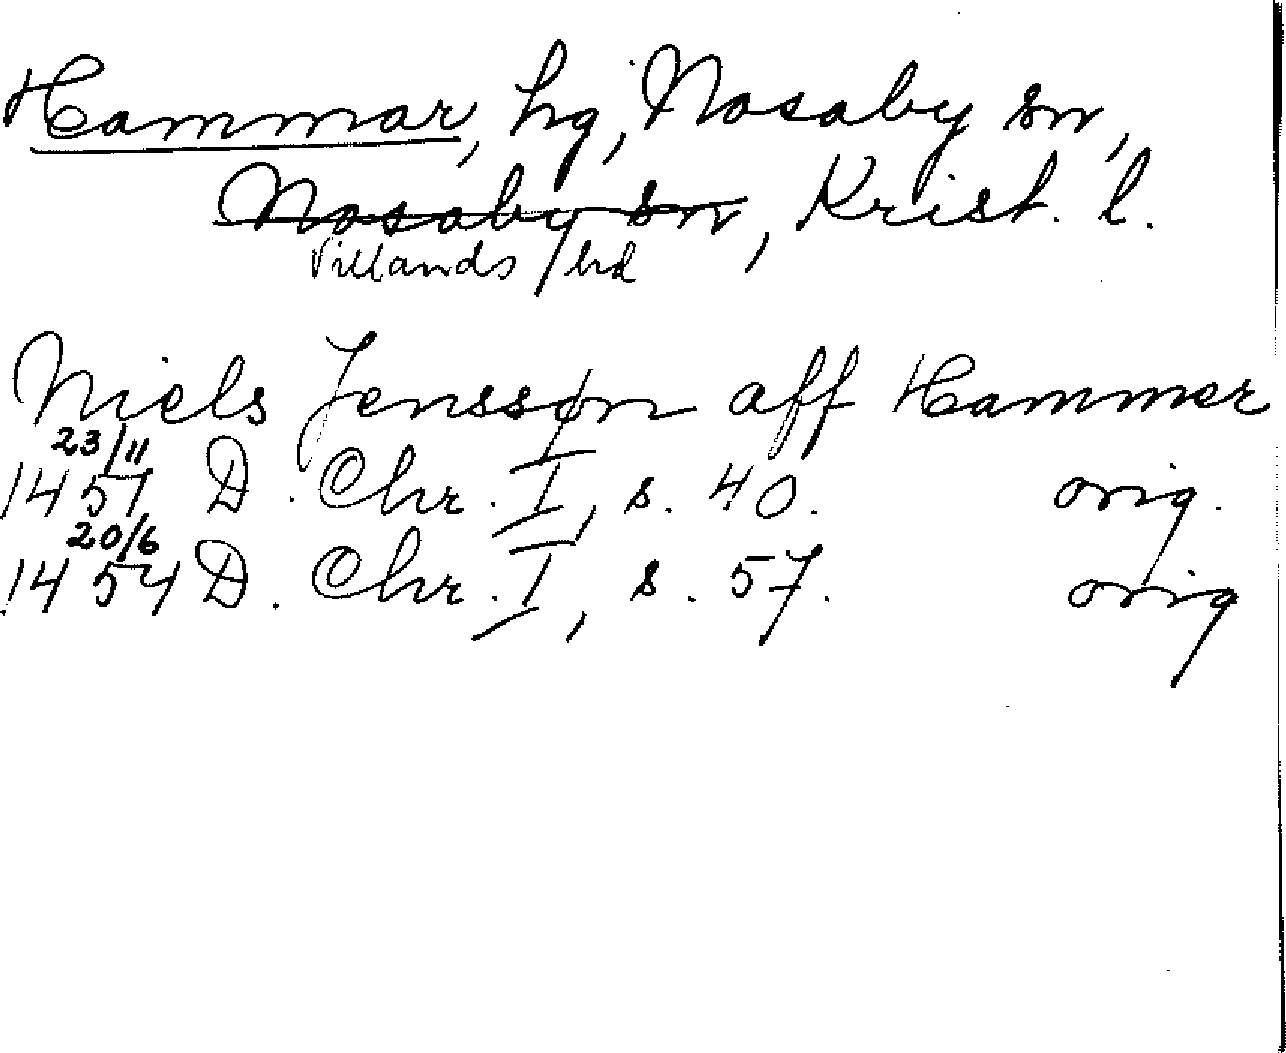 Hammar, hg, Nosaby sn,
Nosaby sn, Krist. l.
Villands hd
Niels Jensszøn aff Hammer
23/11
1451 D. Chr. I, s. 40. orig.
20/6
1454 D. Chr. I, s. 57. orig